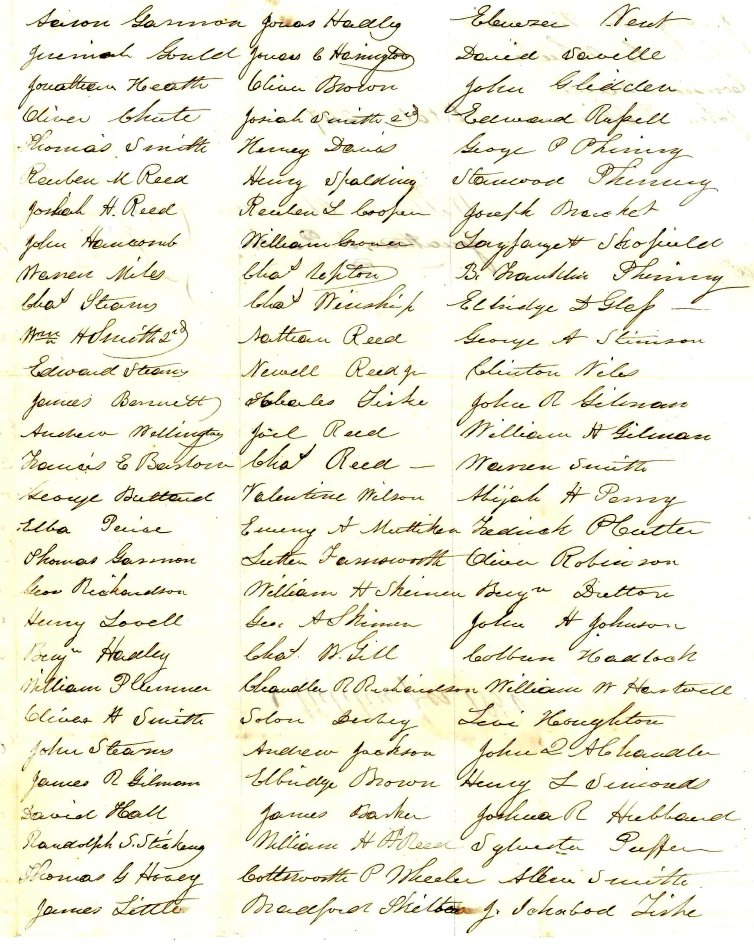 Aaron Garmon Jonas Hadley Ebenezer Nent
Jeremiah Gould Jonas C Harrington David Saville
Jonathan Heath Oliver Brown John Glidden
Oliver Chute Josiah Smith 2nd Edward Russell
Thomas Smith Henry Davis George P Phinny
Reuben M Reed Henry Spalding Stanwood Phinney
Josiah H. Reed Reuben L Cooper Joseph Bracket
John Hancomb William Grover Layfayett Shofield
Warren Miles Chas Upton B. Franklin Phinny
Chas Stearns Chas Winship Elbridge D Glass —
Wm H Smith 2nd Nathan Reed George A Stimson
Edward Stearns Newell Reed Jr Clinton Viles
James Bennett Charles Fiske John R Gilman
Andrew Wellington Joel Reed William H Gilman
Francis E Barstow Chas Reed — Warren Smith
George Buttard Valentine Wilson Abijah H Perry
Elba Peirse Emery A Mullikan Fredrick P Cutter
Thomas Garmon Luther Farnsworth Oliver Robinson
Geo Richardson William H Skimen Benjn Dutton
Henry Lovell Geo. A Skimen John H Johnson
Benjn Hadley Chas B. Gill Colburn Hadlock
William Plummer Chandler R Richardson William W Hartwell
Oliver H Smith Solon Derby Levi Houghton
John Stearns Andrew Jackson John Q A Chandler
James R Gilmom Elbridge Brown Henry L Simonds
David Hall James Barker Joshua R Hubbard
Randolph S. William H H Reed Sylvester Puffer
Thomas G Hovey Cottsworth P Wheeler Allen Smith
James Little Bradford Skelton J. Ichabod Fiske